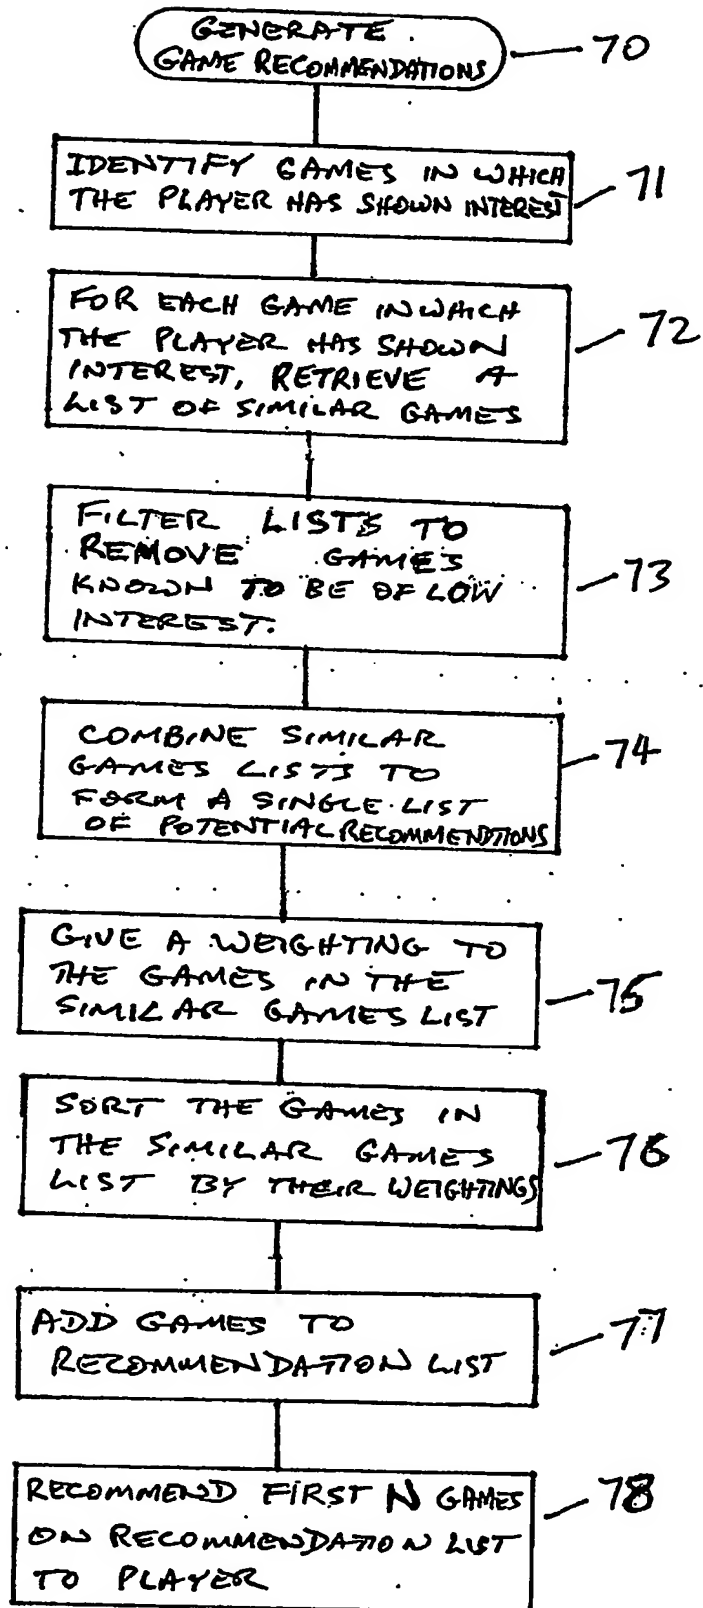 GENERATE
GAME RECOMMENDATIONS
70
IDENTIFY GAMES IN WHICH
THE PLAYER HAS SHOWN INTEREST
71
FOR EACH GAME IN WHICH
THE PLAYER HAS SHOWN
INTEREST, RETRIEVE A
LIST OF SIMILAR GAMES
72
FILTER LISTS TO
REMOVE GAMES
KNOWN TO BE OF LOW
INTEREST.
73
COMBINE SIMILAR
GAMES LISTS TO
FORM A SINGLE LIST
OF POTENTIAL RECOMMENDTIONS
74
GIVE A WEIGHTING TO
THE GAMES IN THE
SIMILAR GAMES LIST
75
SORT THE GAMES IN
THE SIMILAR GAMES
LIST BY THEIR WEIGHTINGS
76
ADD GAMES TO
RECOMMENDATION LIST
77
RECOMMEND FIRST N GAMES
ON RECOMMENDATION LIST
TO PLAYER
78